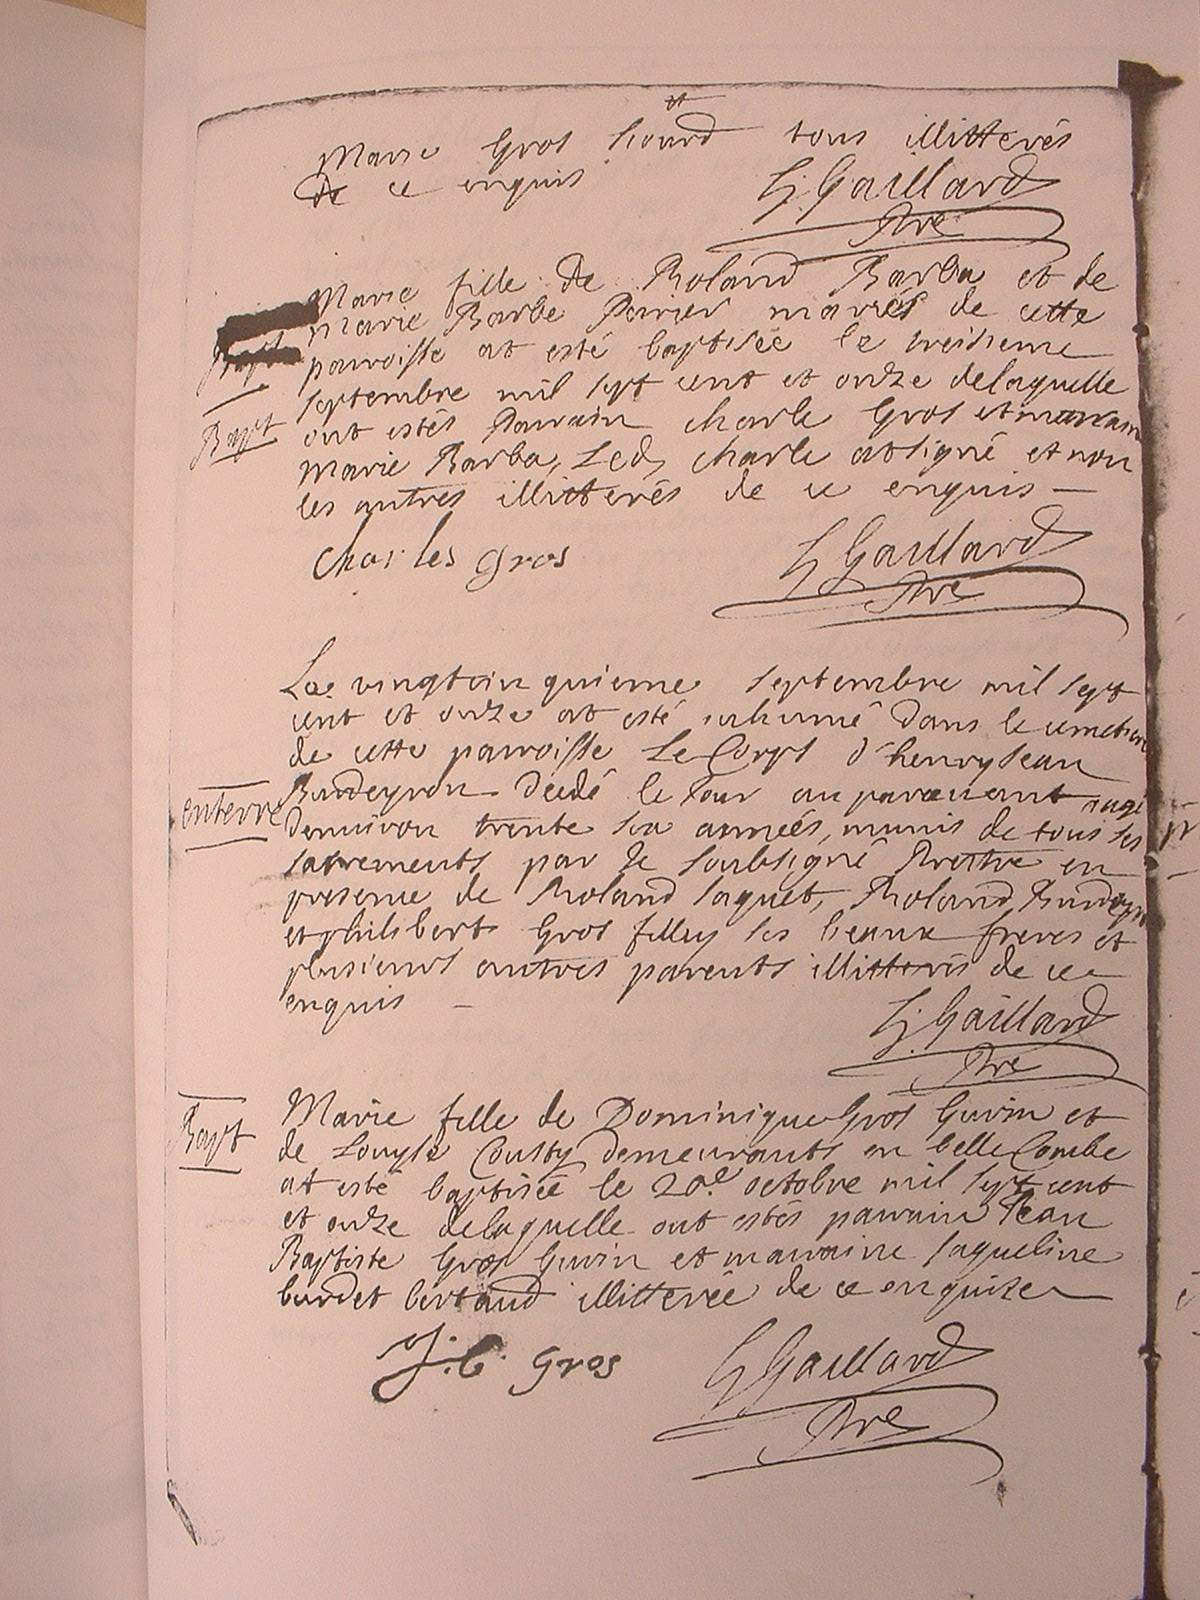 Marie Gros tous illitterés
de ce enquis
G Gaillard
Pre
Marie fille de Roland Barba et de
Marie Barbe Perier mariés de cette
parroisse at esté baptisée le treisieme
septembre mil sept cent et onze delaquelle
Bapt
ont estés parrain charle Gros et marraine
Marie Barba, Led charle at signé et non
les autres illitterés de ce enquis
Charles gros
G Gaillard
Pre
Le vingtcinquieme septembre mil sept
cent et onze at esté inhumé dans le cemetiere
de cette parroisse Le Corps d'henry Jean
enterre
Burdeyron decdé le Jour auparavant aagé
denuiron trente six années, munis de tous ses
sacrements par le soubsigné Prettre en
presence de Roland Jaquet, Roland Burdeyron
et philibert Gros ses beaux freres et
plusieurs autres parents illitterés de ce
enquis
G. Gaillard
Pre
Bapt
Marie fille de Dominique Gros Guvin et
de Louyse Coutty demeurants en belle Combe
at esté baptisée le 20e octobre mil sept cent
et onze delaquelle ont estés parrain Jean
Baptiste Gros Guvin et marraine Jaqueline
burdet bertaud illitterée de ce enquise
J. b. gros
G Gaillard
Pre